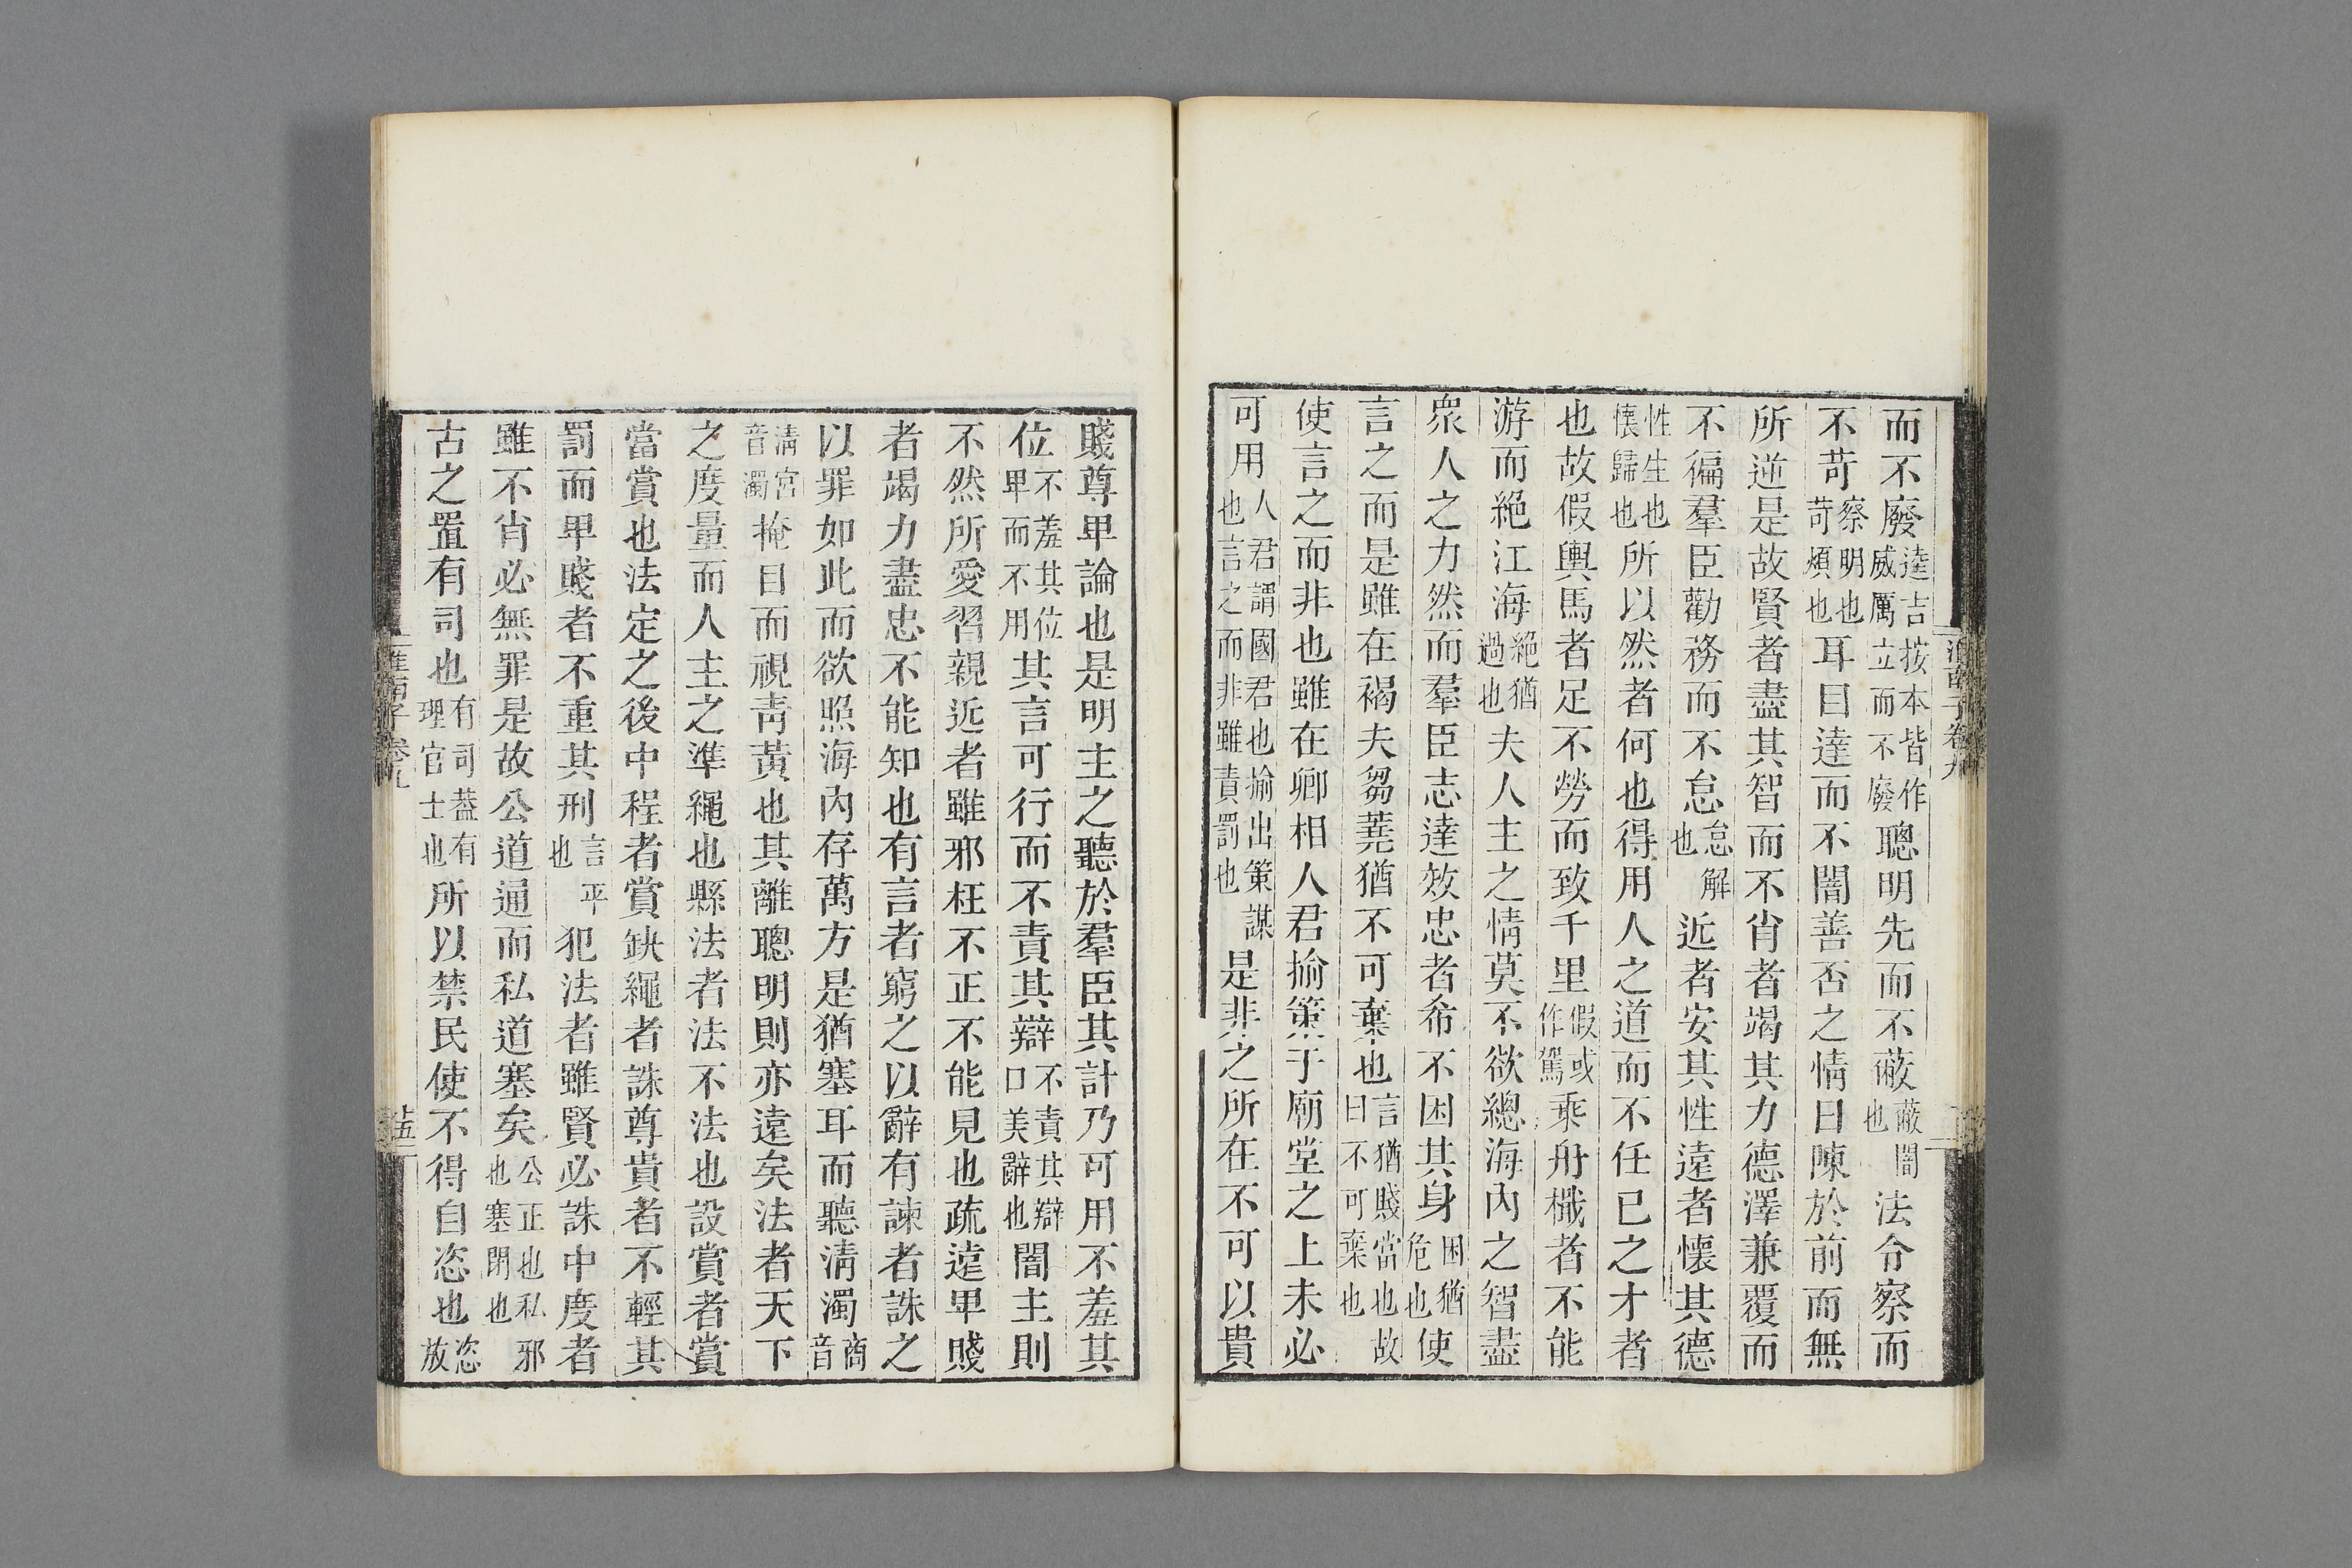 而不廢逵吉按本皆作威厲立而不廢聰明先而不蔽蔽闇也法令察而
不苛察明也苛煩也耳目達而不闇善否之情日陳於前而無
所逆是故賢者盡其智而不肖者竭其力德澤兼覆而
不徧羣臣勸務而不怠怠解也近者安其性遠者懷其德
性生也懷歸也所以然者何也得用人之道而不任已之才者
也故假輿馬者足不勞而致千里假或作駕乘舟檝者不能
游而絶江海絶猶過也夫人主之情莫不欲總海內之智盡
衆人之力然而羣臣志達效忠者希不困其身困猶危也使
言之而是雖在褐夫芻蕘猶不可棄也言猶賤當也故曰不可棄也
使言之而非也雖在卿相人君揄策于廟堂之上未必
可用人君謂國君也揄出策謀也言之而非雖責罰也是非之所在不可以貴
賤尊𤰞論也是明主之聽於羣臣其計乃可用不羞其
位不羞其位𤰞而不用其言可行而不責其辯不責其辯口美辭也闇主則
不然所愛習親近者雖邪枉不正不能見也疏遠𤰞賤
者竭力盡忠不能知也有言者窮之以辭有諫者誅之
以罪如此而欲照海內存萬方是猶塞耳而聽淸濁商音
淸宮音濁掩目而視靑黃也其離聰明則亦遠矣法者天下
之度量而人主之準繩也縣法者法不法也設賞者賞
當賞也法定之後中程者賞缺繩者誅尊貴者不輕其
罰而𤰞賤者不重其刑言平也犯法者雖賢必誅中度者
雖不肖必無罪是故公道通而私道塞矣公正也私邪也塞閉也
古之置有司也有司蓋有理官士也所以禁民使不得自恣也恣放
淮南子卷九
十五